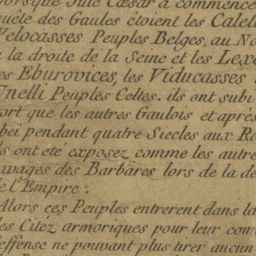 lorsque Jule Cæsar a commencé
quête des Gaules étoient les Calet
Velocasses Peuples Belges, au No
a la droite de la Seine et les Lexo
es Eburovices, les Viducasses
Unelli Peuples Celtes. ils ont subi
ort que les autres Gaulois et aprés
béi pendant quatre Siecles aux R
ls ont eté exposez comme les autre
avages des Barbares lors de la de
e L'Empire.
Alors ces Peuples entrerent dans la
es Citez armoriques pour leur com
effense ne pouvant plus tirer aucun